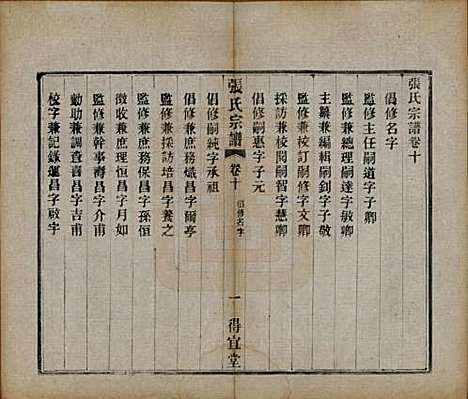 張氏宗譜卷十
倡修名字
監修主任嗣道字子卿
監修兼總理嗣達字敏卿
監修兼校訂嗣修字文卿
主纂兼編輯嗣釗字子敬
採訪兼校閱嗣智字慧卿
倡修嗣惠字子元
張氏宗譜 卷十 倡修名字 一 得宜堂
倡修嗣純字承祖
倡修兼庶務熾昌字爾亭
監修兼採訪培昌字養之
監修兼庶務保昌字孫恒
徵收兼庶理恒昌字月如
監修兼幹事壽昌字介甫
勷助兼調查喜昌字吉甫
校字兼記錄運昌字啟宇